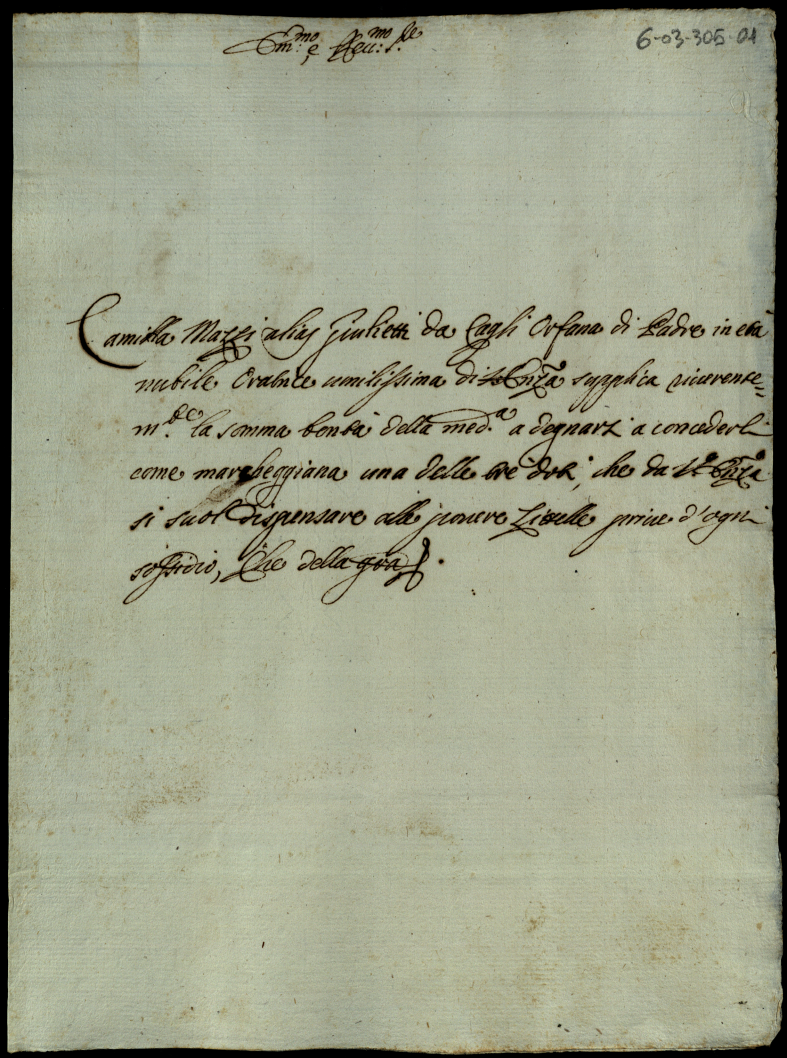 6-03-305-01
Em:mo e Reu:mo S.re
Camilla Mazzi alias Giulietti da Cagli Orfana di Padre in età
nubile Oratrice umilissima di V.Emza supplica riuerente=
m.te la somma bontà della med.a a degnarsi a concederli
come marcheggiana una delle tre doti, che da V.a Emza
si suol dispensare alle pouere Zitelle priue d'ogni
sossidio, Che della gra